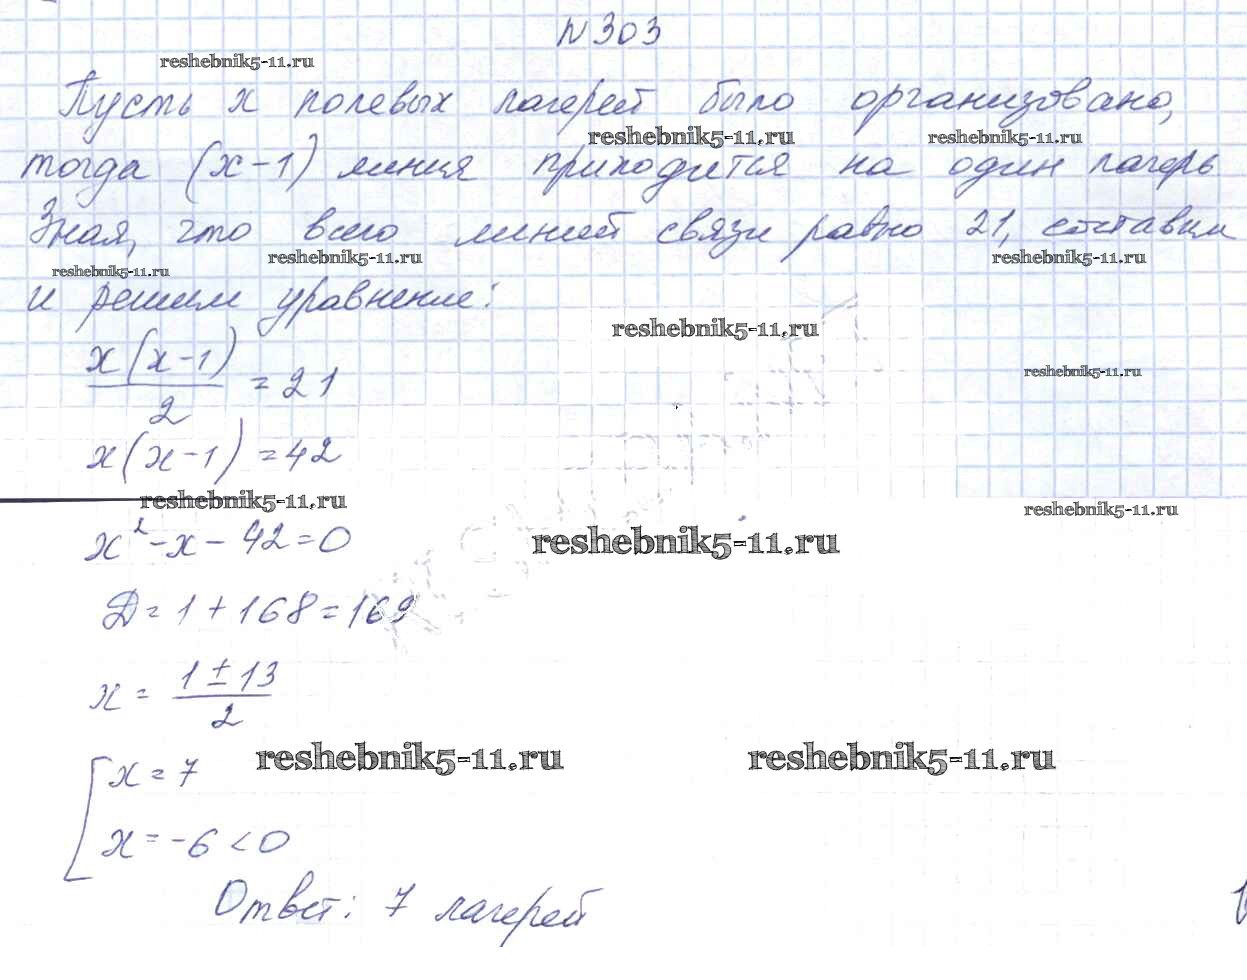 N 303
reshebnik5-11.ru
Пусть x полевых лагерей было организовано,
reshebnik5-11.ru reshebnik5-11.ru
тогда (x-1) линия приходится на один лагерь.
Зная, что всего линий связи равно 21, составим
reshebnik5-11.ru reshebnik5-11.ru reshebnik5-11.ru
и решим уравнение:
reshebnik5-11.ru
x(x-1)/2 = 21
reshebnik5-11.ru
x(x-1) = 42
reshebnik5-11.ru reshebnik5-11.ru
x² - x - 42 = 0
reshebnik5-11.ru
D = 1 + 168 = 169
x = (1 ± 13)/2
reshebnik5-11.ru reshebnik5-11.ru
[ x = 7
x = -6 < 0
Ответ: 7 лагерей